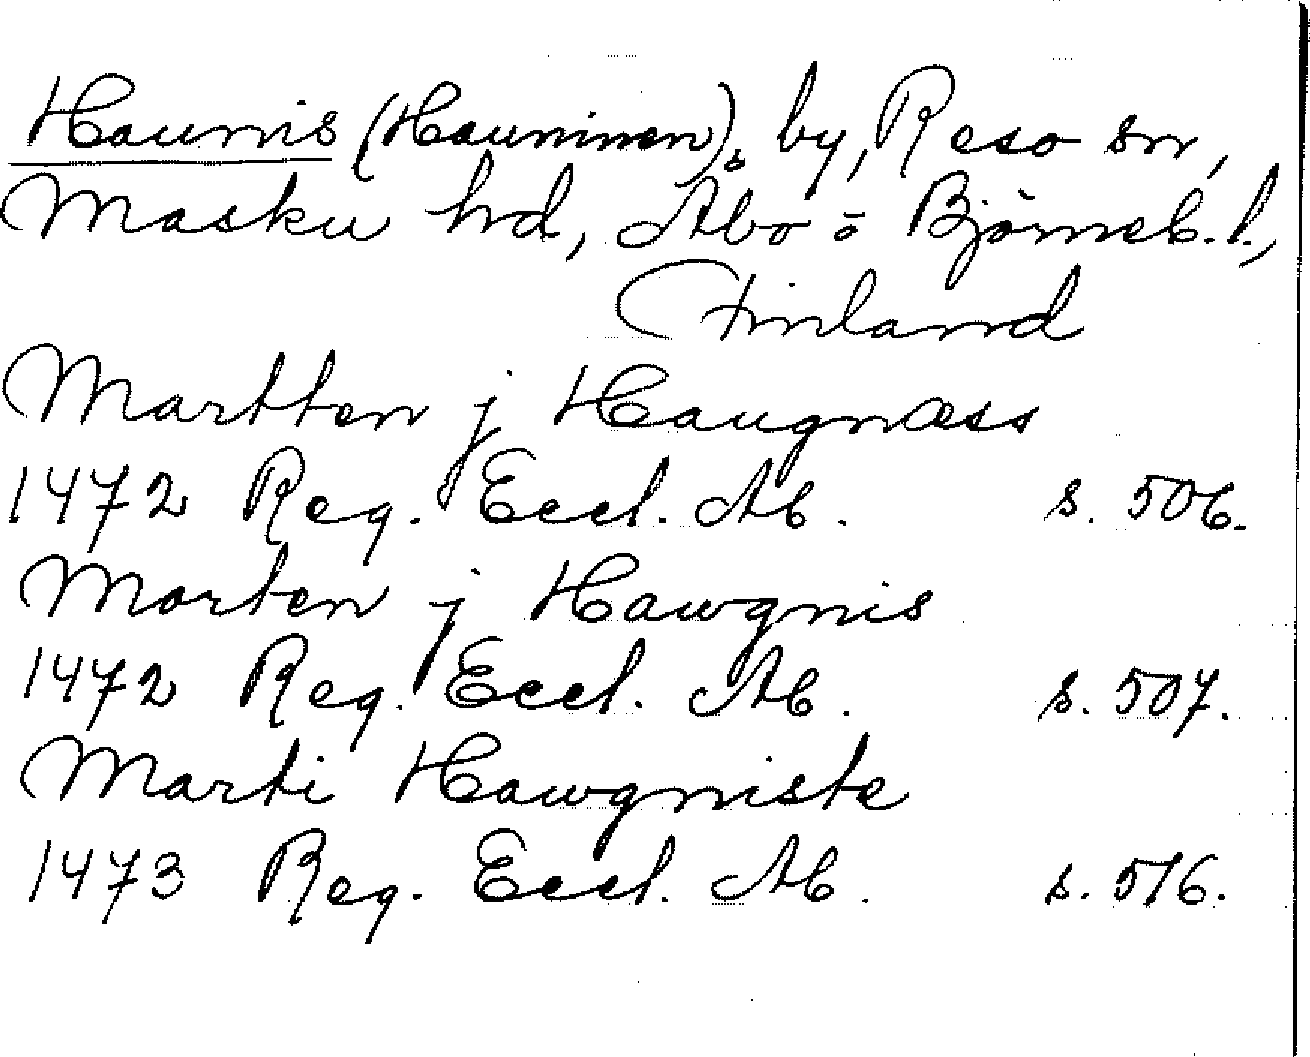 Haunis (Hauninen), by, Reso sn,
Masku hd, Åbo o Björneb. l.,
Finland
Martten j Haugnæss
1472 Reg. Eccl. Ab. s. 506.
Morten j Hawgnis
1472 Reg. Eccl. Ab. s. 507.
Marti Hawgniste
1473 Reg. Eccl. Ab. s. 516.